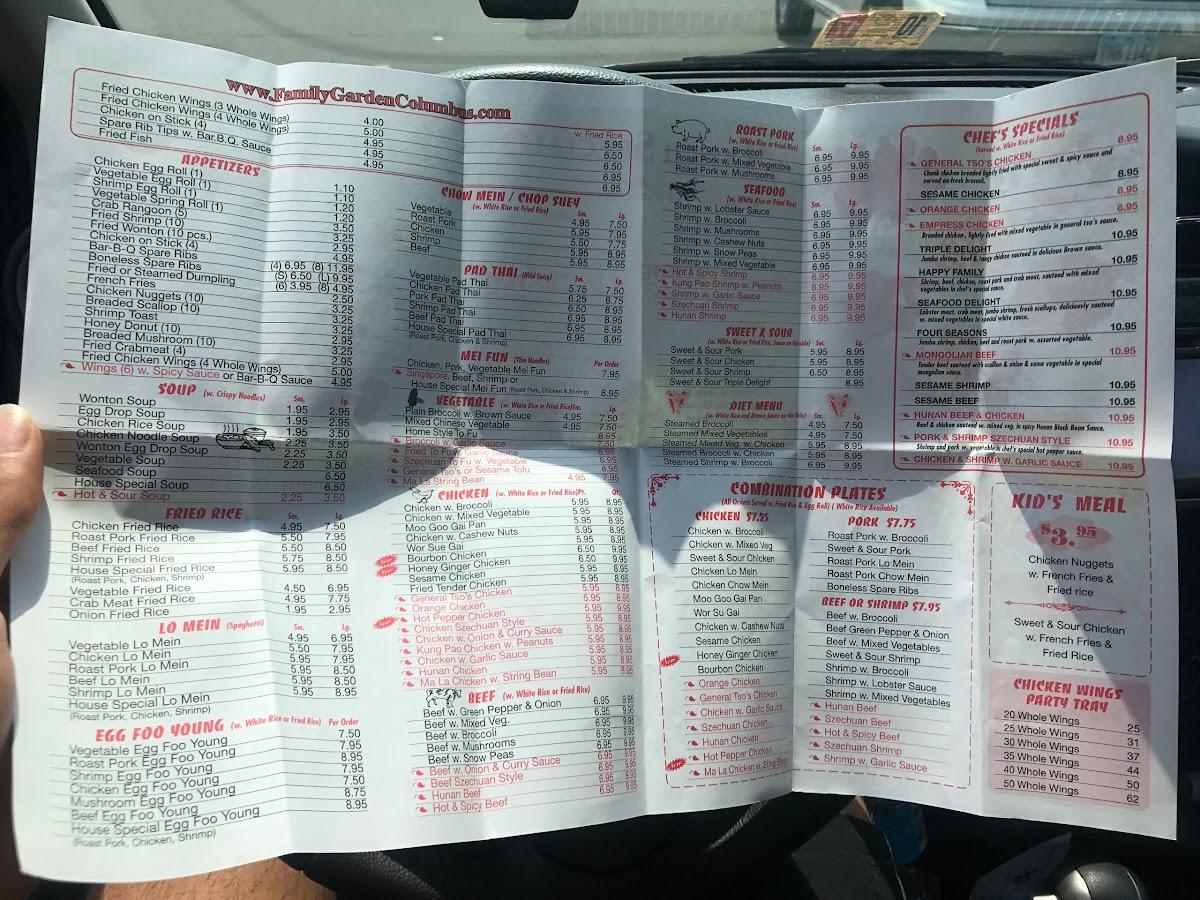 www.FamilyGardenColumbus.com
w. Fried Rice
Fried Chicken Wings (3 Whole Wings) 4.00 5.95
Fried Chicken Wings (4 Whole Wings) 5.00 6.50
Chicken on Stick (4) 4.95 6.50
Spare Rib Tips w. Bar.B.Q. Sauce 4.95 6.95
Fried Fish 4.95 6.95
APPETIZERS
Chicken Egg Roll (1) 1.10
Vegetable Egg Roll (1) 1.10
Shrimp Egg Roll (1) 1.20
Vegetable Spring Roll (1) 1.20
Crab Rangoon (5) 3.50
Fried Shrimp (10) 3.25
Fried Wonton (10 pcs.) 2.95
Chicken on Stick (4) 4.95
Bar-B-Q Spare Ribs (4) 6.95 (8) 11.95
Boneless Spare Ribs (S) 6.50 (L) 9.95
Fried or Steamed Dumpling (6) 3.95 (8) 4.95
French Fries 2.50
Chicken Nuggets (10) 3.25
Breaded Scallop (10) 3.25
Shrimp Toast 3.25
Honey Donut (10) 3.25
Breaded Mushroom (10) 3.25
Fried Crabmeat (4) 2.95
Fried Chicken Wings (4 Whole Wings) 5.00
Wings (6) w. Spicy Sauce or Bar-B-Q Sauce 4.95
SOUP (w. Crispy Noodles) Sm. Lg.
Wonton Soup 1.95 2.95
Egg Drop Soup 1.95 2.95
Chicken Rice Soup 1.95 2.95
Chicken Noodle Soup 2.25 3.50
Wonton Egg Drop Soup 2.25 3.50
Vegetable Soup 2.25 3.50
Seafood Soup 6.50
House Special Soup 6.50
Hot & Sour Soup 2.25 3.50
FRIED RICE Sm. Lg.
Chicken Fried Rice 4.95 7.50
Roast Pork Fried Rice 5.50 7.95
Beef Fried Rice 5.50 8.50
Shrimp Fried Rice 5.75 8.50
House Special Fried Rice 5.95 8.50
(Roast Pork, Chicken, Shrimp)
Vegetable Fried Rice 4.50 6.95
Crab Meat Fried Rice 4.95 7.75
Onion Fried Rice 1.95 2.95
LO MEIN (Spaghetti) Sm. Lg.
Vegetable Lo Mein 4.95 6.95
Chicken Lo Mein 5.50 7.95
Roast Pork Lo Mein 5.95 7.95
Beef Lo Mein 5.95 8.50
Shrimp Lo Mein 5.95 8.50
House Special Lo Mein 5.95 8.95
(Roast Pork, Chicken, Shrimp)
EGG FOO YOUNG (w. White Rice or Fried Rice) Per Order
Vegetable Egg Foo Young 7.50
Roast Pork Egg Foo Young 7.95
Shrimp Egg Foo Young 8.95
Chicken Egg Foo Young 7.95
Mushroom Egg Foo Young 7.50
Beef Egg Foo Young 8.75
House Special Egg Foo Young 8.95
(Roast Pork, Chicken, Shrimp)
CHOW MEIN / CHOP SUEY
(w. White Rice or Fried Rice) Sm. Lg.
Vegetable 4.95 7.50
Roast Pork 5.95 7.95
Chicken 5.50 7.75
Shrimp 5.95 8.95
Beef 5.95 8.95
PAD THAI (Mild Spicy) Sm. Lg.
Vegetable Pad Thai 5.75 7.50
Chicken Pad Thai 6.25 8.75
Pork Pad Thai 6.50 8.95
Shrimp Pad Thai 6.95 8.95
Beef Pad Thai 6.95 8.95
House Special Pad Thai 6.95 8.95
(Roast Pork, Chicken & Shrimp)
MEI FUN (Thin Noodles) Per Order
Chicken, Pork, Vegetable Mei Fun 7.95
Singapore, Beef, Shrimp or
House Special Mei Fun (Roast Pork, Chicken & Shrimp) 8.95
VEGETABLE (w. White Rice or Fried Rice) Sm. Lg.
Plain Broccoli w. Brown Sauce 4.95 7.50
Mixed Chinese Vegetable 4.95 7.50
Home Style To Fu 8.95
Broccoli w. Garlic Sauce 7.50
Fried To Fu w. Garlic Sauce 8.95
Szechuan To Fu w. Vegetable 8.95
General Tso's or Sesame Tofu 8.95
Ma La String Bean 4.95 7.95
CHICKEN (w. White Rice or Fried Rice) Pt. Qt.
Chicken w. Broccoli 5.95 8.95
Chicken w. Mixed Vegetable 5.95 8.95
Moo Goo Gai Pan 5.95 8.95
Chicken w. Cashew Nuts 5.95 8.95
Wor Sue Gai 5.95 8.95
Bourbon Chicken 6.50 9.95
Honey Ginger Chicken 6.50 9.95
Sesame Chicken 5.95 8.95
Fried Tender Chicken 5.95 8.95
General Tso's Chicken 5.95 8.95
Orange Chicken 5.95 8.95
Hot Pepper Chicken 5.95 8.95
Chicken Szechuan Style 5.95 8.95
Chicken w. Onion & Curry Sauce 5.95 8.95
Kung Pao Chicken w. Peanuts 5.95 8.95
Chicken w. Garlic Sauce 5.95 8.95
Hunan Chicken 5.95 8.95
Ma La Chicken w. String Bean 5.95 8.95
BEEF (w. White Rice or Fried Rice)
Beef w. Green Pepper & Onion 6.95 9.95
Beef w. Mixed Veg. 6.95 9.95
Beef w. Broccoli 6.95 9.95
Beef w. Mushrooms 6.95 9.95
Beef w. Snow Peas 6.95 9.95
Beef w. Onion & Curry Sauce 6.95 9.95
Beef Szechuan Style 6.95 9.95
Hunan Beef 6.95 9.95
Hot & Spicy Beef 6.95 9.95
ROAST PORK
(w. White Rice or Fried Rice) Sm. Lg.
Roast Pork w. Broccoli 6.95 9.95
Roast Pork w. Mixed Vegetable 6.95 9.95
Roast Pork w. Mushrooms 6.95 9.95
SEAFOOD
(w. White Rice or Fried Rice) Sm. Lg.
Shrimp w. Lobster Sauce 6.95 9.95
Shrimp w. Broccoli 6.95 9.95
Shrimp w. Mushrooms 6.95 9.95
Shrimp w. Cashew Nuts 6.95 9.95
Shrimp w. Snow Peas 6.95 9.95
Shrimp w. Mixed Vegetable 6.95 9.95
Hot & Spicy Shrimp 6.95 9.95
Kung Pao Shrimp w. Peanuts 6.95 9.95
Shrimp w. Garlic Sauce 6.95 9.95
Szechuan Shrimp 6.95 9.95
Hunan Shrimp 6.95 9.95
SWEET & SOUR
(w. White Rice or Fried Rice, Sauce on the side) Sm. Lg.
Sweet & Sour Pork 5.95 8.95
Sweet & Sour Chicken 5.95 8.95
Sweet & Sour Shrimp 6.50 8.95
Sweet & Sour Triple Delight 8.95
DIET MENU
(w. White Rice and Brown Sauce on the Side) Sm. Lg.
Steamed Broccoli 4.95 7.50
Steamed Mixed Vegetables 4.95 7.50
Steamed Mixed Veg. w. Chicken 5.95 8.95
Steamed Broccoli w. Chicken 5.95 8.95
Steamed Shrimp w. Broccoli 6.95 9.95
COMBINATION PLATES
(All Orders Served w. Fried Rice & Egg Roll) ( White Rice Available)
CHICKEN $7.25
Chicken w. Broccoli
Chicken w. Mixed Veg
Sweet & Sour Chicken
Chicken Lo Mein
Chicken Chow Mein
Moo Goo Gai Pan
Wor Su Gai
Chicken w. Cashew Nuts
Sesame Chicken
Honey Ginger Chicken
Bourbon Chicken
Orange Chicken
General Tso's Chicken
Chicken w. Garlic Sauce
Szechuan Chicken
Hunan Chicken
Hot Pepper Chicken
Ma La Chicken w. String Bean
PORK $7.75
Roast Pork w. Broccoli
Sweet & Sour Pork
Roast Pork Lo Mein
Roast Pork Chow Mein
Boneless Spare Ribs
BEEF OR SHRIMP $7.95
Beef w. Broccoli
Beef Green Pepper & Onion
Beef w. Mixed Vegetables
Sweet & Sour Shrimp
Shrimp w. Broccoli
Shrimp w. Lobster Sauce
Shrimp w. Mixed Vegetables
Hunan Beef
Szechuan Beef
Hot & Spicy Beef
Szechuan Shrimp
Shrimp w. Garlic Sauce
CHEF'S SPECIALS
(Served w. White Rice or Fried Rice)
GENERAL TSO'S CHICKEN 8.95
Chunk chicken breaded lightly fried with special sweet & spicy sauce and
served on fresh broccoli.
SESAME CHICKEN 8.95
ORANGE CHICKEN 8.95
EMPRESS CHICKEN 8.95
Breaded chicken, lightly fried with mixed vegetable in general tso's sauce.
TRIPLE DELIGHT 10.95
Jumbo shrimp, beef & tangy chicken sauteed in delicious Brown sauce.
HAPPY FAMILY 10.95
Shrimp, beef, chicken, roast pork and crab meat, sauteed with mixed
vegetables in chef's special sauce.
SEAFOOD DELIGHT 10.95
Lobster meat, crab meat, jumbo shrimp, fresh scallops, deliciously sauteed
w. mixed vegetables in special white sauce.
FOUR SEASONS 10.95
Jumbo shrimp, chicken, beef and roast pork w. assorted vegetable.
MONGOLIAN BEEF 10.95
Tender beef sauteed with scallion & onion & some vegetable in special
mongolian sauce.
SESAME SHRIMP 10.95
SESAME BEEF 10.95
HUNAN BEEF & CHICKEN 10.95
Beef & chicken sauteed w. mixed veg. in spicy Hunan Black Bean Sauce.
PORK & SHRIMP SZECHUAN STYLE 10.95
Shrimp and pork w. vegetable in chef's special hot pepper sauce.
CHICKEN & SHRIMP W. GARLIC SAUCE 10.95
KID'S MEAL
$3.95
Chicken Nuggets
w. French Fries &
Fried rice
Sweet & Sour Chicken
w. French Fries &
Fried Rice
CHICKEN WINGS
PARTY TRAY
20 Whole Wings 25
25 Whole Wings 31
30 Whole Wings 37
35 Whole Wings 44
40 Whole Wings 50
50 Whole Wings 62